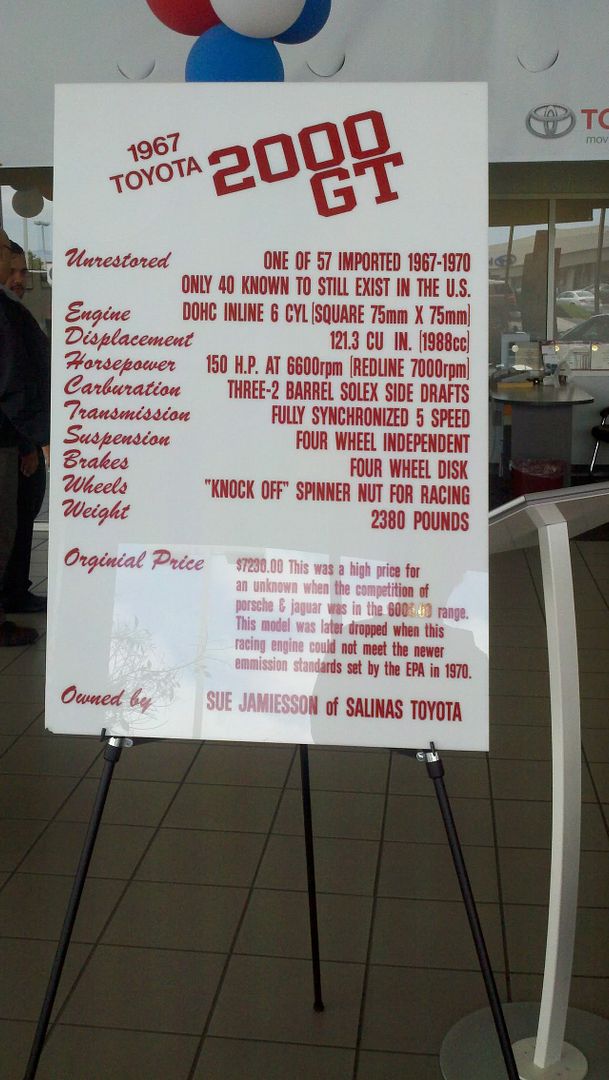 1967
TOYOTA
2000
GT
Unrestored ONE OF 57 IMPORTED 1967-1970
ONLY 40 KNOWN TO STILL EXIST IN THE U.S.
Engine DOHC INLINE 6 CYL (SQUARE 75mm X 75mm)
Displacement 121.3 CU IN. (1988cc)
Horsepower 150 H.P. AT 6600rpm (REDLINE 7000rpm)
Carburation THREE-2 BARREL SOLEX SIDE DRAFTS
Transmission FULLY SYNCHRONIZED 5 SPEED
Suspension FOUR WHEEL INDEPENDENT
Brakes FOUR WHEEL DISK
Wheels "KNOCK OFF" SPINNER NUT FOR RACING
Weight 2380 POUNDS
Orginial Price $7230.00 This was a high price for
an unknown when the competition of
porsche & jaguar was in the range.
This model was later dropped when this
racing engine could not meet the newer
emmission standards set by the EPA in 1970.
Owned by SUE JAMIESSON of SALINAS TOYOTA
TO
mov